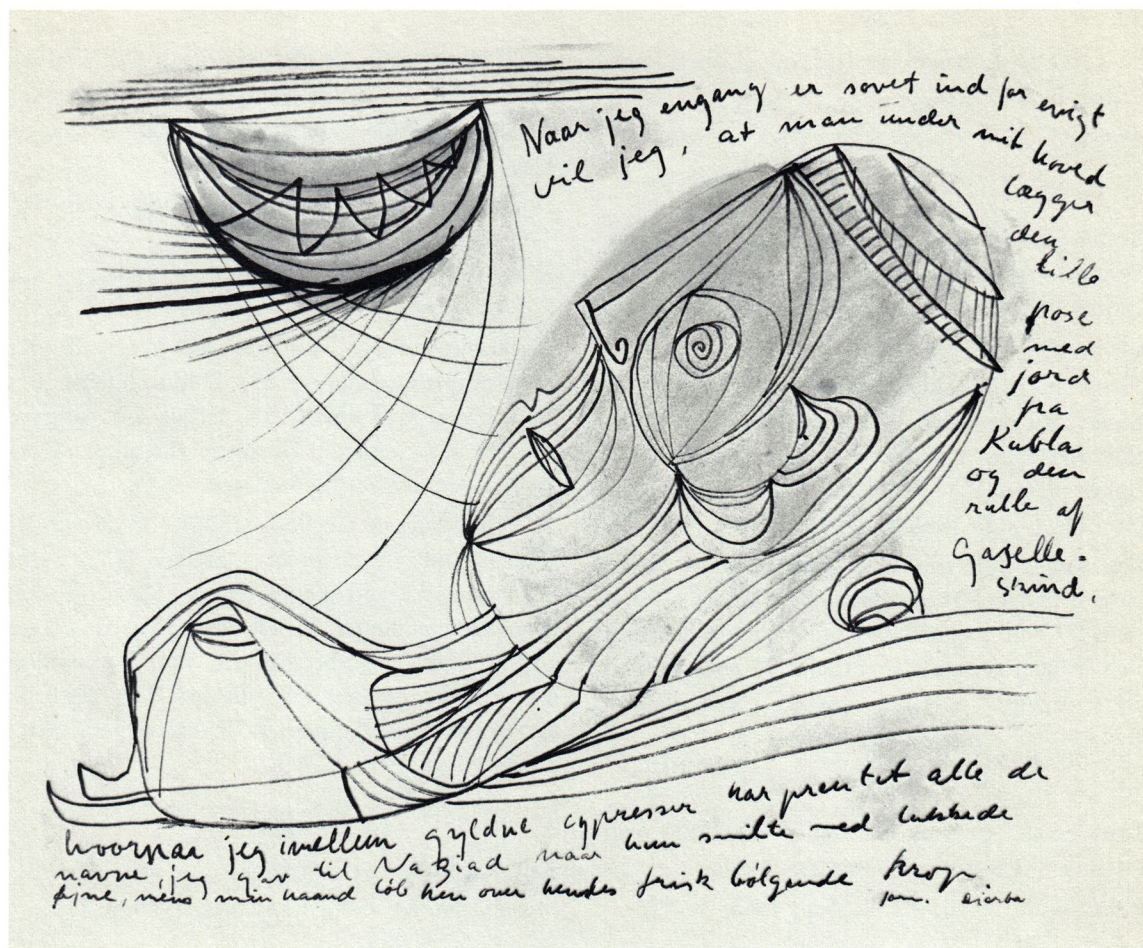 Naar jeg engang er sovet ind for evigt
vil jeg, at man under mit hoved
lægger
den
lille
pose
med
jord
fra
Kubla
og den
rulle af
Gaselle-
skind,
hvorpaa jeg imellem gyldne cypresser har prentet alle de
navne, jeg gav til Naziad naar hun smilte med lukkede
øjne, mens min haand løb hen over hendes frisk bølgende krop